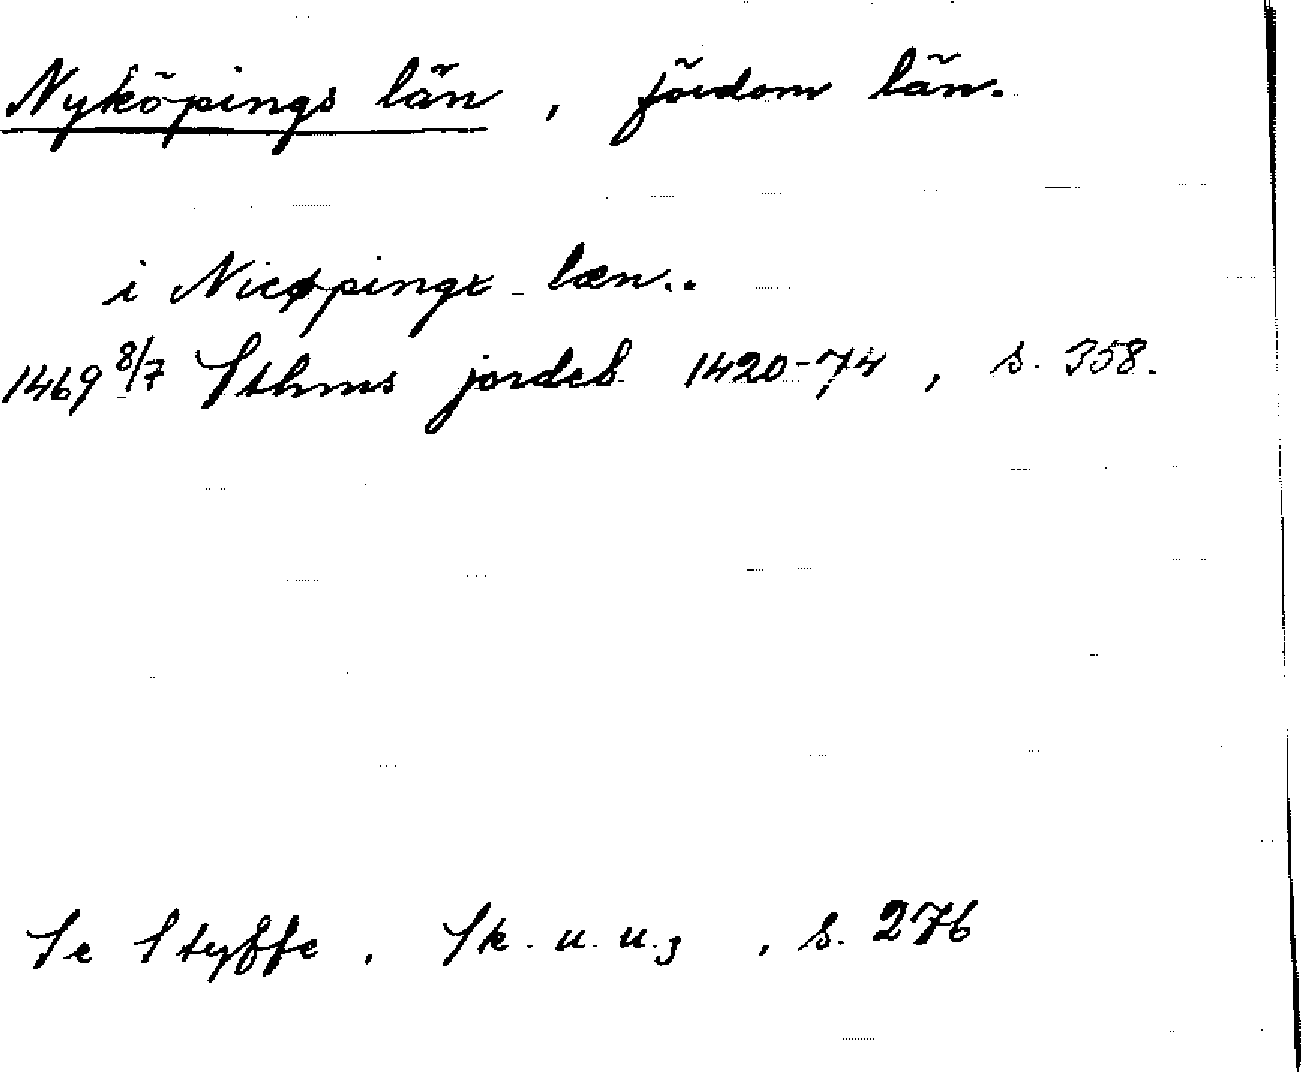 Nyköpings län, fördom län.
i Nicøpingx læn..
1469 8/7 Sthms jordeb 1420-74, s. 358.
Se Styffe, Sk. u. u.3, s. 276